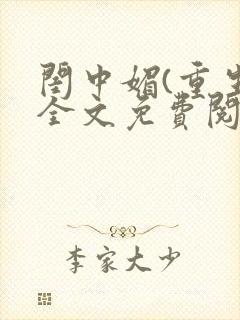 閨中媚(重生
全文免費閱
李家大少